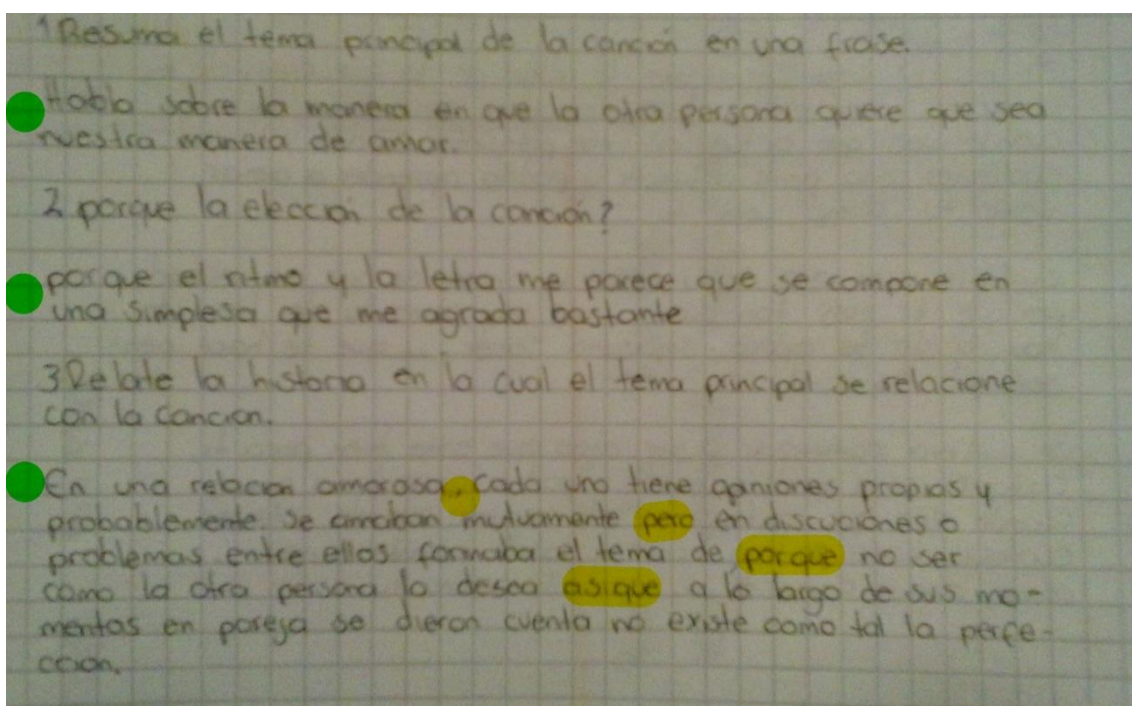 1 Resuma el tema principal de la canción en una frase.
Habla sobre la manera en que la otra persona quiere que sea
nuestra manera de amar.
2 porque la elección de la canción?
porque el ritmo y la letra me parece que se compone en
una simplesa que me agrada bastante
3 Relate la historia en la cual el tema principal se relacione
con la cancion.
En una relacion amorosa, cada uno tiene opniones propias y
probablemente se amaban mutuamente pero en discuciones o
problemas entre ellos formaba el tema de porque no ser
como la otra persona lo desea asique a lo largo de sus mo-
mentos en pareja se dieron cuenta no existe como tal la perfe-
ccion.